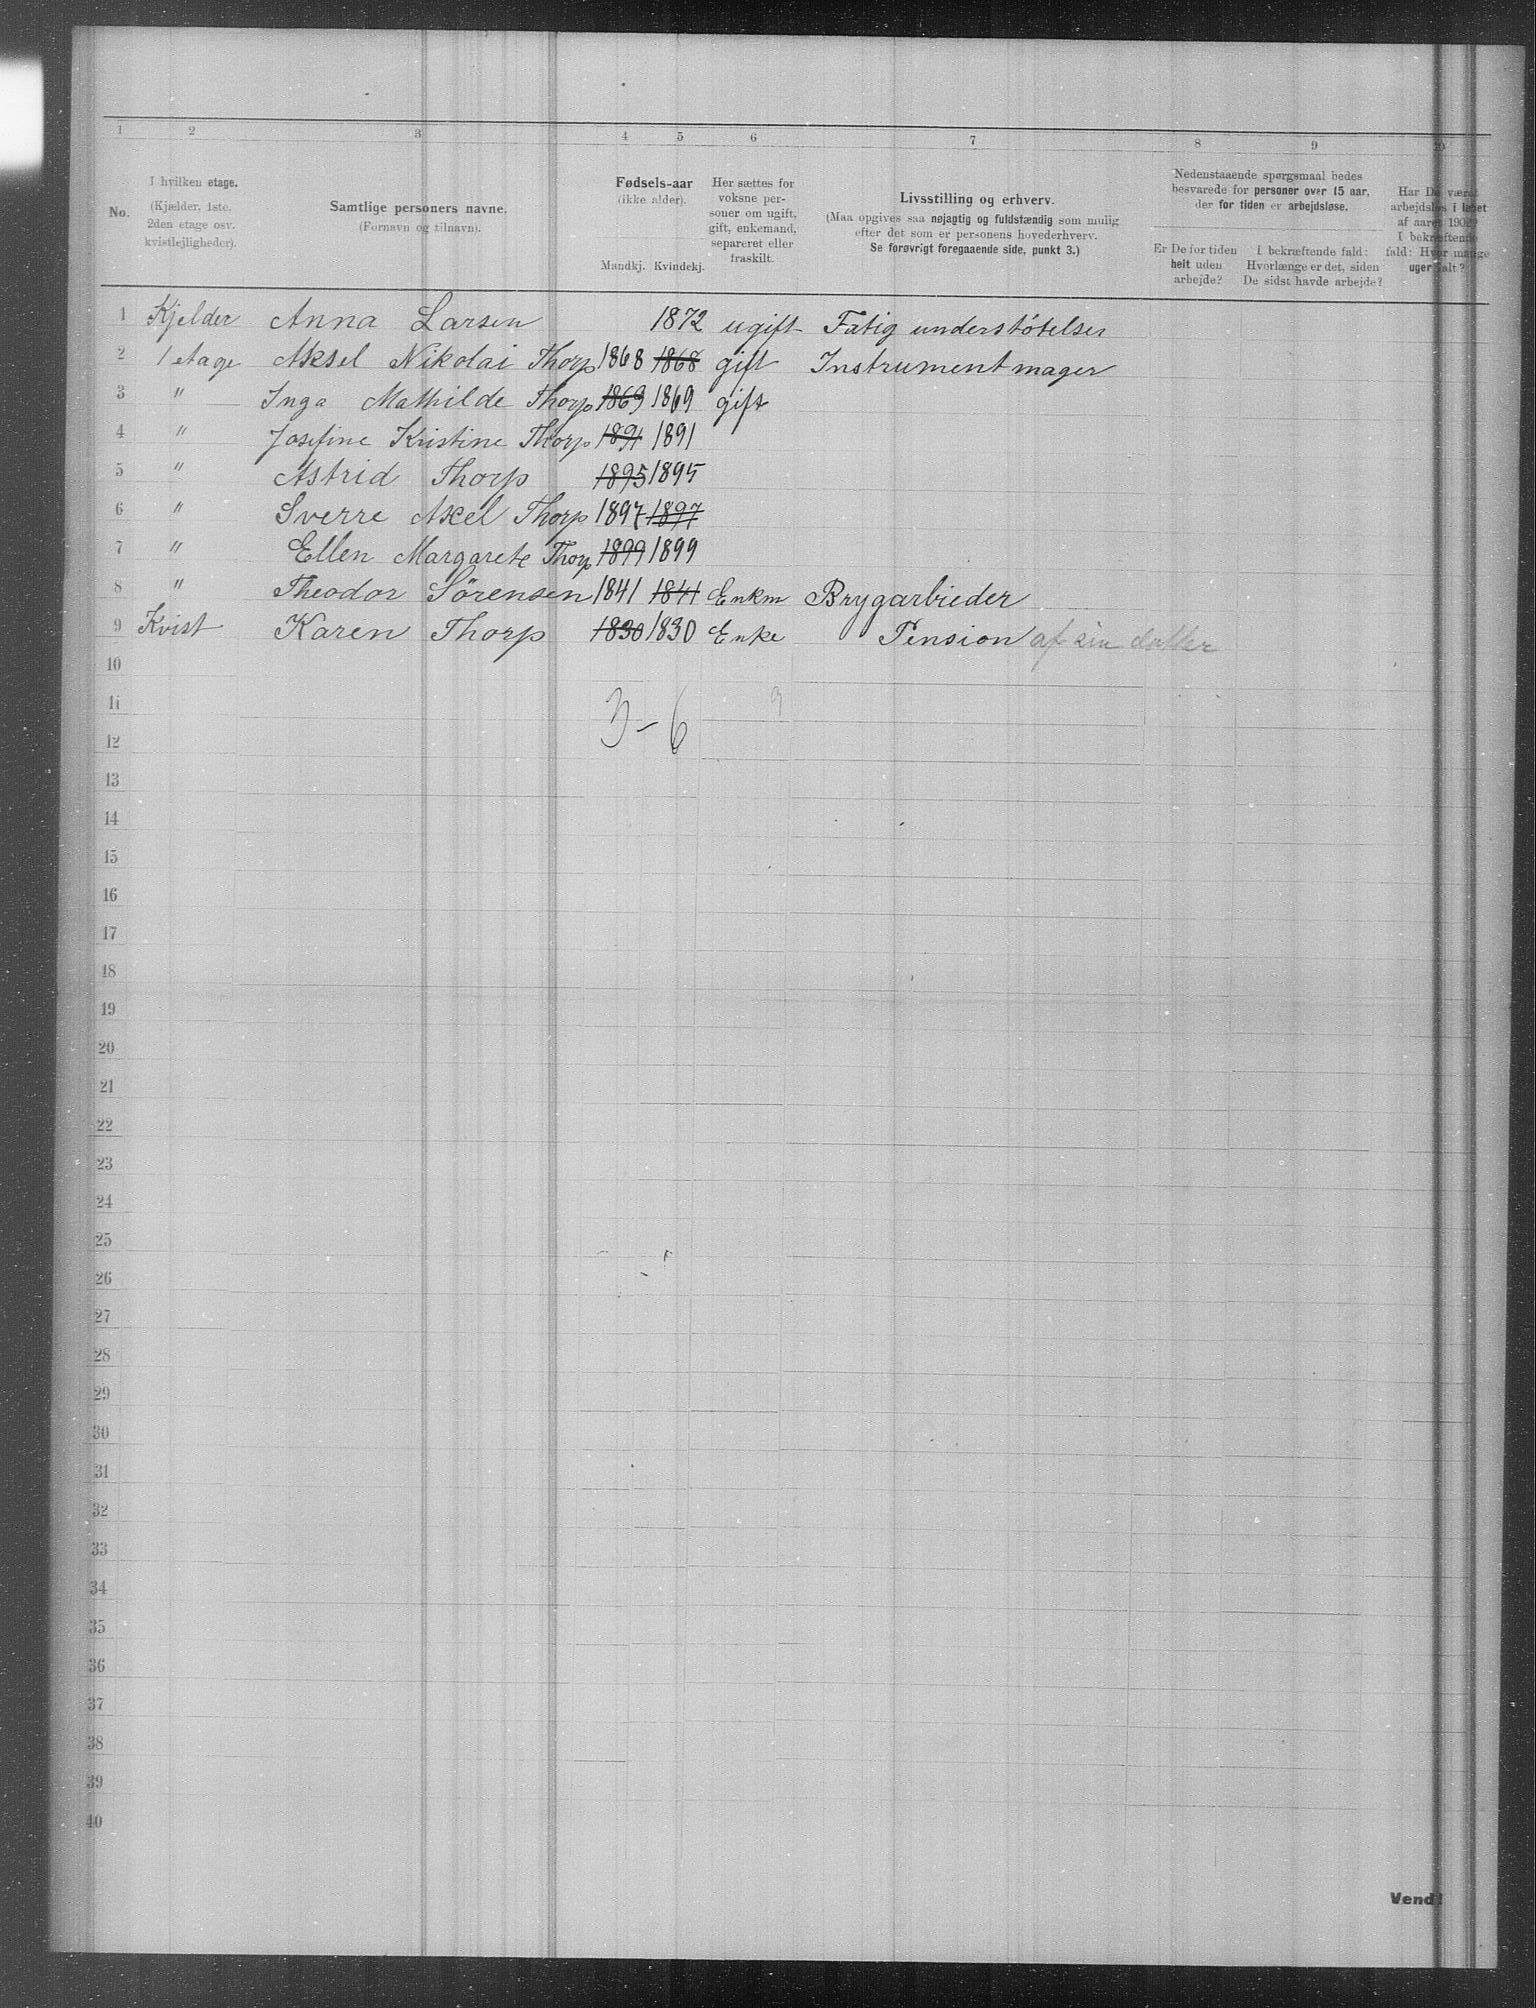 1 2 3 4 5 6 7 8 9 10
No. I hvilken etage. (Kjælder, 1ste. 2den etage osv. kvistlejligheder). Samtlige personers navne. (Fornavn og tilnavn). Fødsels-aar (ikke alder). Mandkj. Kvindekj. Her sættes for voksne personer om ugift, gift, enkemand, separeret eller fraskilt. Livsstilling og erhverv. (Maa opgives saa nøjagtig og fuldstændig som mulig efter det som er personens hovederhverv. Se forøvrigt foregaaende side, punkt 3.) Nedenstaaende spørgsmaal bedes besvarede for personer over 15 aar, der for tiden er arbejdsløse. Er De for tiden helt uden arbejde? I bekræftende fald: Hvorlænge er det, siden De sidst havde arbejde? Har De været arbejdsløs i løbet af aaret 1902? I bekræftende fald: Hvor mange uger ialt?
1 Kjelder Anna Larsen 1872 ugift Fatig understótelser
2 1 etage Aksel Nikolai Thorp 1868 1868 gift Instrumentmager
3 " Inga Mathilde Thorp 1869 1869 gift
4 " Josefine Kristine Thorp 1891 1891
5 " Astrid Thorp 1895 1895
6 " Sverre Axel Thorp 1897 1897
7 " Ellen Margarete Thorp 1899 1899
8 " Theodor Sörensen 1841 1841 Enkm Brygarbieder
9 Kvist Karen Thorp 1830 1830 Enke Pension af sin datter
10
11
3 - 6 9
12
13
14
15
16
17
18
19
20
21
22
23
24
25
26
27
28
29
30
31
32
33
34
35
36
37
38
39
40
Vend!